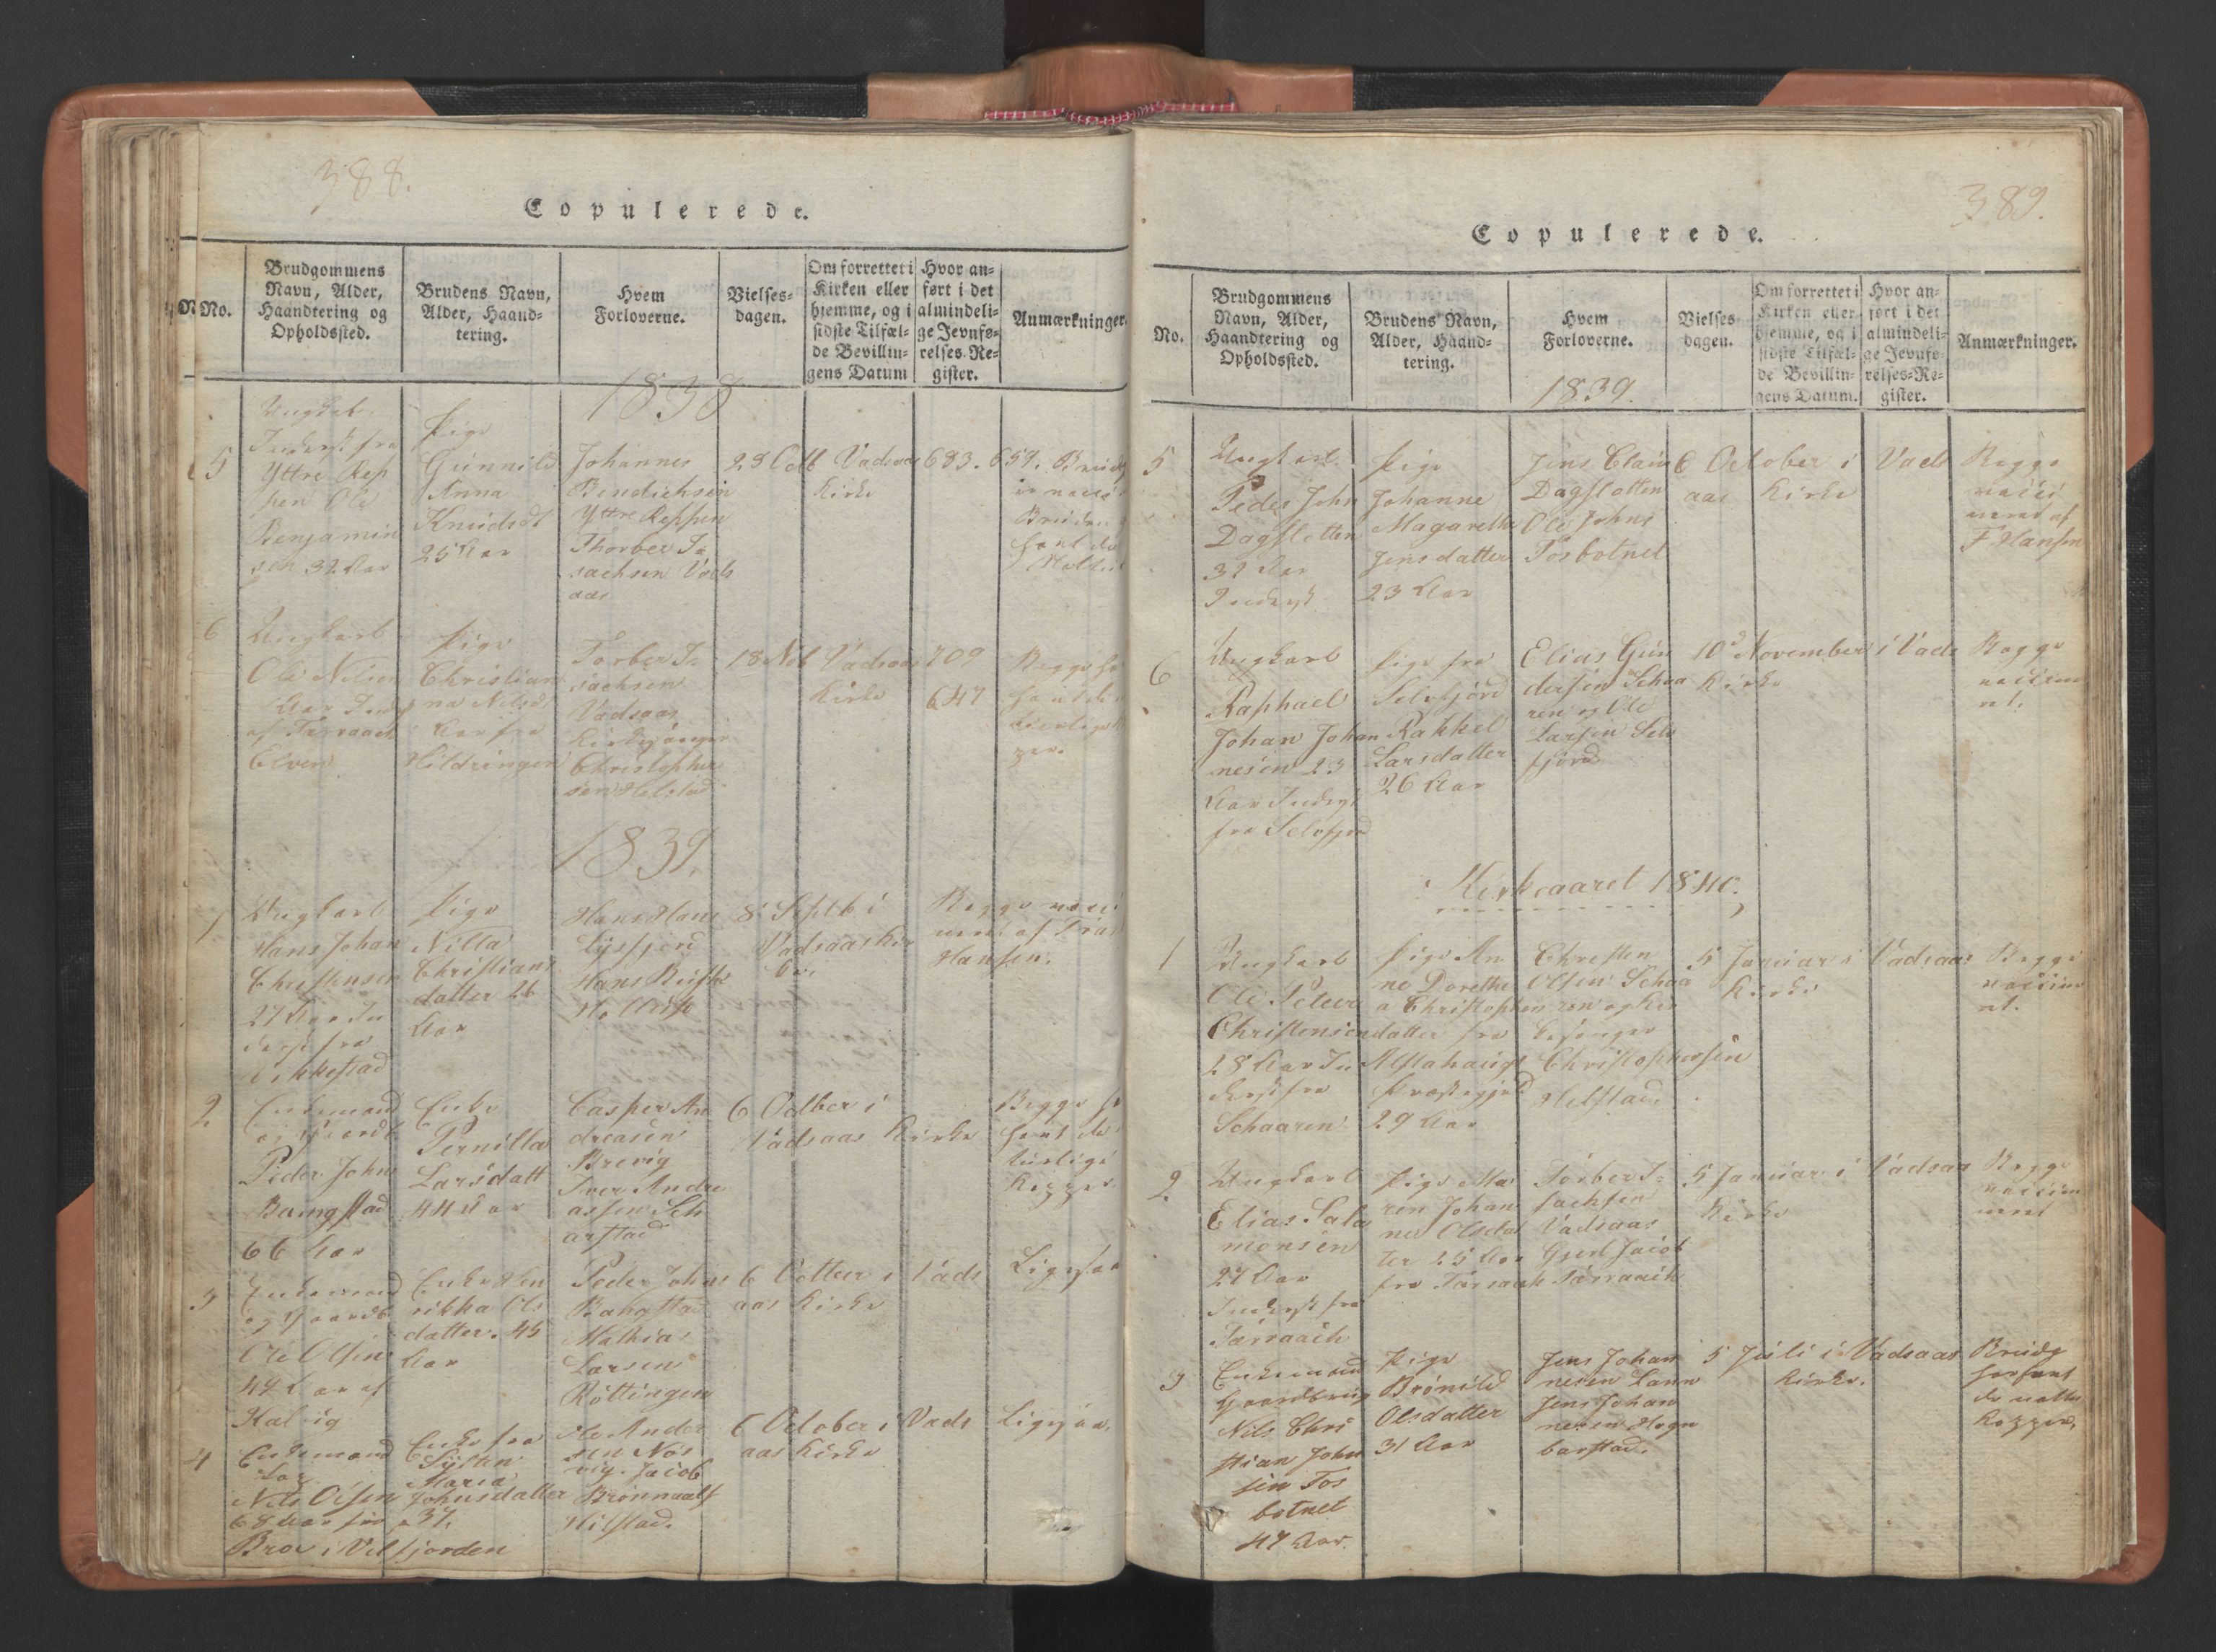 388.
Copulerede.
No.
Brudgommens Navn, Alder, Haandtering og Opholdssted.
Brudens Navn, Alder, Haandtering.
Hvem Forloverne.
Vielsesdagen.
Om forrettet i Kirken eller hjemme, og i sidste Tilfælde Bevillingens Datum
Hvor anført i det almindelige Jevnførelses-Register.
Anmærkninger.
1838
5
Ungkarl
Inderst fra
Yttre Rep
pen Ole
Benjamin
sen 32 Aar
Pige
Gunnild
Anna
Knudsdt
25 Aar
Johannes
Bendichsen
Yttre Reppen
Thorber Is
sachsen Vads
aas
28 Octb Vadsaas
Kirke
683. 659.
6
Ungkarl
Ole Nilsen
Elven
Pige
Christian
na Nilsd
Aar fra
Hildringen
Torber Is
sachsen
Vadsaas
Kirkesanger
Christopher
sen Helstad
18 Nob Vadsaas
Kirke
709
647
1839.
1
Ungkarl
Hans Johan
Christensen
27 Aar In
derst fra
Vikkestad
Pige
Nilla
Christians
datter 26
Aar
Hans Hans
8 Septb i
Vadsaas Kir
ke
Begge vacci
neret af
Hansen.
2
Enkemand
og Gaardb
Peder Johns
Bangstad
66 Aar
Enke
Pernilla
Larsdatt
44 Aar
Casper An
dreasen
Brevig
Iver Andre
assen Sch
arstad
6 Octber i
Vadsaas Kirke
Begge ha
havt de na
turlige
Kopper
3
Enkemand
og Gaardb
Ole Olsen
49 Aar af
Kalvig
Enke Hen
rikka Ols
datter. 45
Aar
Peder Johns
Bangstad
Mathias
Larsen
Röttingen
6 Octber i Vads
aas Kirke
Ligesaa
4
Enkemand
Nils Olsen
68 Aar fra
Brox i Velfjorden
Enke fra
Maria
Johnsdatter
37.
Ole Ander
sen Nös
vig. Jacob
Hilstad.
6 October i Vads
aas Kirke
Ligesaa.
389.
Copulerede.
No.
Brudgommens Navn, Alder, Haandtering og Opholdssted.
Brudens Navn, Alder, Haandtering.
Hvem Forloverne.
Vielsesdagen.
Om forrettet i Kirken eller hjemme, og i sidste Tilfælde Bevillingens Datum.
Hvor anført i det almindelige Jevnførelses-Register.
Anmærkninger.
1839.
5
Ungkarl
Peder John
Dagslotten
32 Aar
Inderst
Pige
Johanne
Magarethe
Jensdatter
23 Aar
Jens Claus
Dagslotten
Ole Johns
Tosbotnet
6 October i Vads
aas Kirke
Begge
vacci
neret af
F Hansen
6
Ungkarl
Raphael
Johan Johan
nesen 23
Aar Inderst
fra Selvfjord
Pige fra
Selvfjord
Rakkel
Larsdatter
26 Aar
Elias Gun
dersen Schaa
ren og Ole
Larsen Selv
fjord
10d November i Vads
Kirke
Begge
vaccine
ret.
Kirkeaaret 1840.
1
Ungkarl
Ole Peter
Christensen
28 Aar In
derst fra
Schaaren
Pige An
ne Dorethe
a Christophers
datter fra
Alstahaugs
Præstegjeld
29 Aar
Christen
Olsen Schaa
ren og Kir
kesanger
Christophersen
Helstad
5 Januar i Vadsaas
Kirke
Begge
vaccine
ret.
2
Ungkarl
Elias Salo
monsen
27 Aar
Inderst fra
Tarraack
Pige Ma
ren Johan
na Olsdat
ter 25 Aar
fra Tarraack
Torber I-
sachsen
Vadsaas
Gjert Jacob
Tarraack
5 Januar i Vadsaa
Kirke
Begge
vaccine
neret
3
Enkemand
Gaardbrug
Nils Chri
stian John
sen Tos
botnet
47 Aar.
Pige
Brönild
Olsdatter
31 Aar
Jens Johan
nesen Lann
Jens Johan
nesen Hogn
barstad.
5 Juli i Vadsaas
Kirke.
Brudg
har havt
de natur
Kopper.